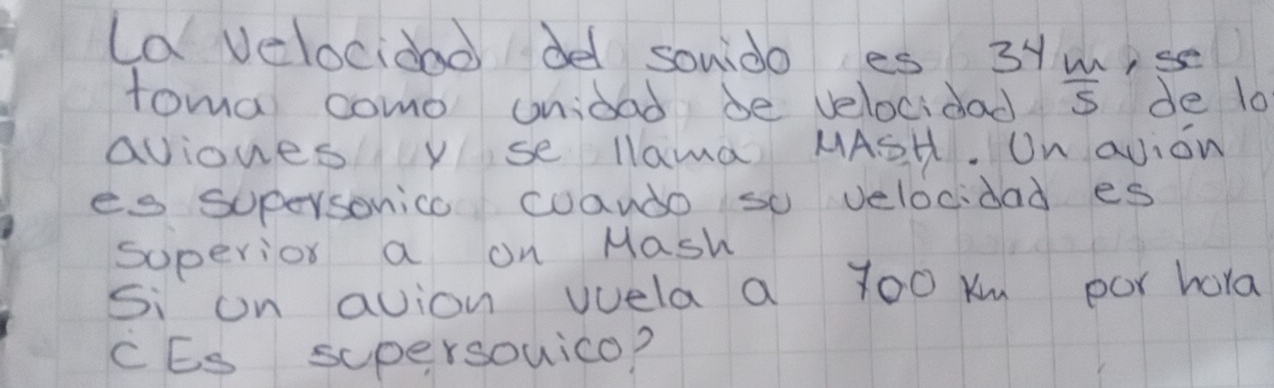 La velocidad del sonido es 34 m/s, se
toma como unidad de velocidad de lo
aviones y se llama MASH. Un avión
es supersonico cuando su velocidad es
superior a un Mash
Si un avion vuela a 700 Km por hora
¿Es supersonico?